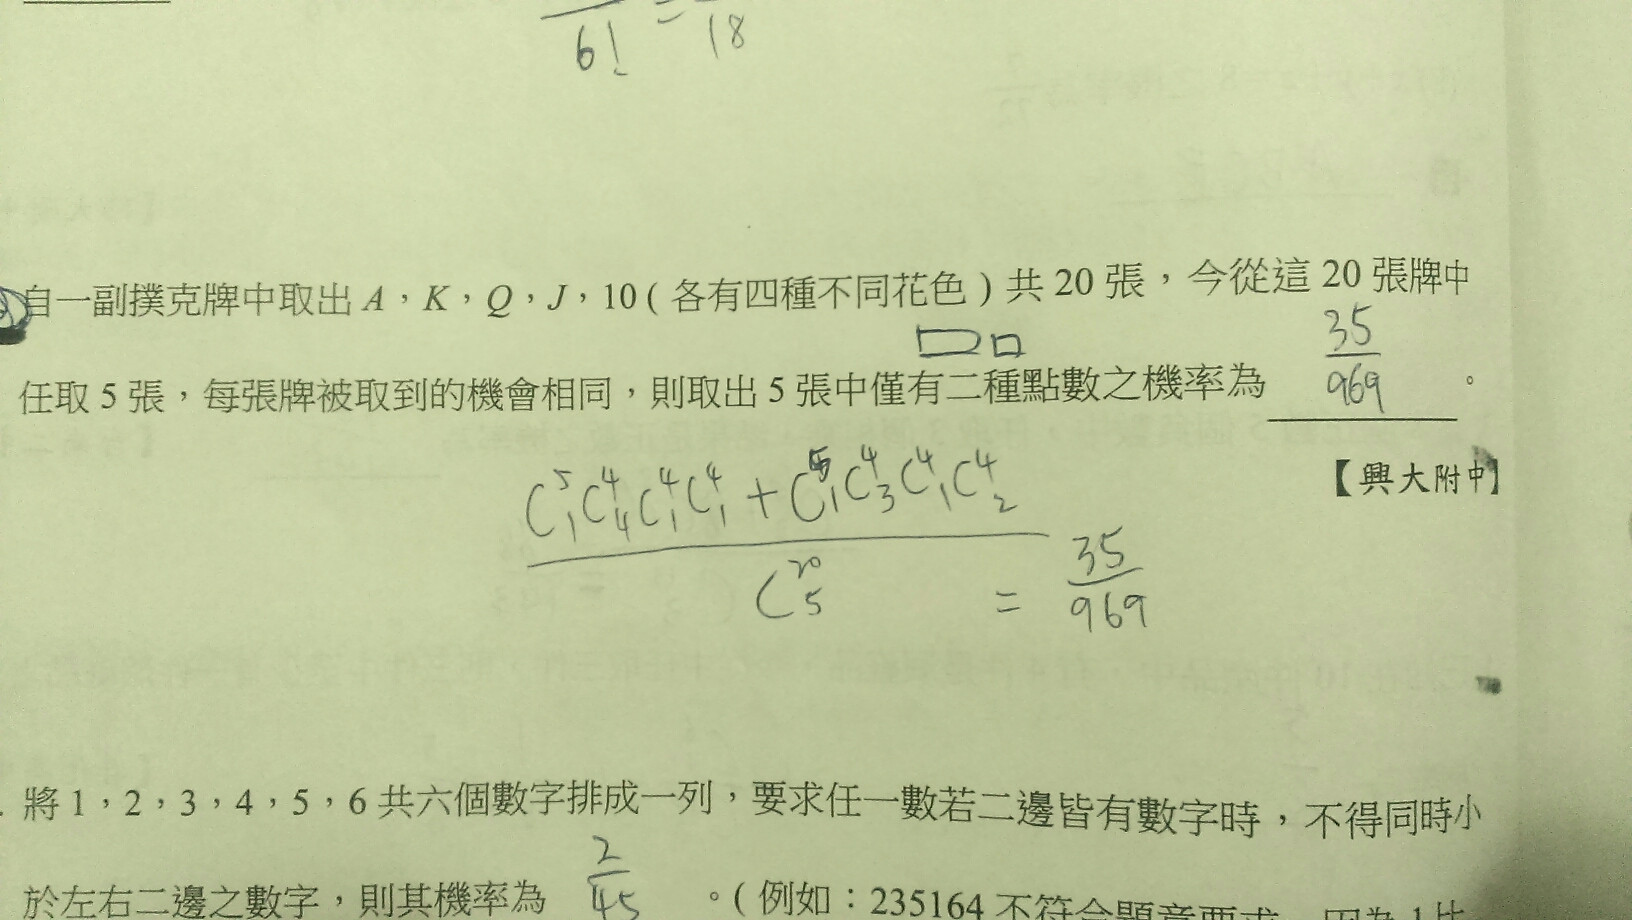 6! = 18
自一副撲克牌中取出 A，K，Q，J，10 ( 各有四種不同花色 ) 共 20 張，今從這 20 張牌中
任取 5 張，每張牌被取到的機會相同，則取出 5 張中僅有二種點數之機率為 35/969 。
【興大附中】
(C^5_1 C^4_4 C^4_1 C^4_1 + C^5_1 C^4_3 C^4_1 C^4_2) / C^20_5 = 35/969
將 1，2，3，4，5，6 共六個數字排成一列，要求任一數若二邊皆有數字時，不得同時小
於左右二邊之數字，則其機率為 2/45 。( 例如：235164 不符合題意要求，因為 1 比